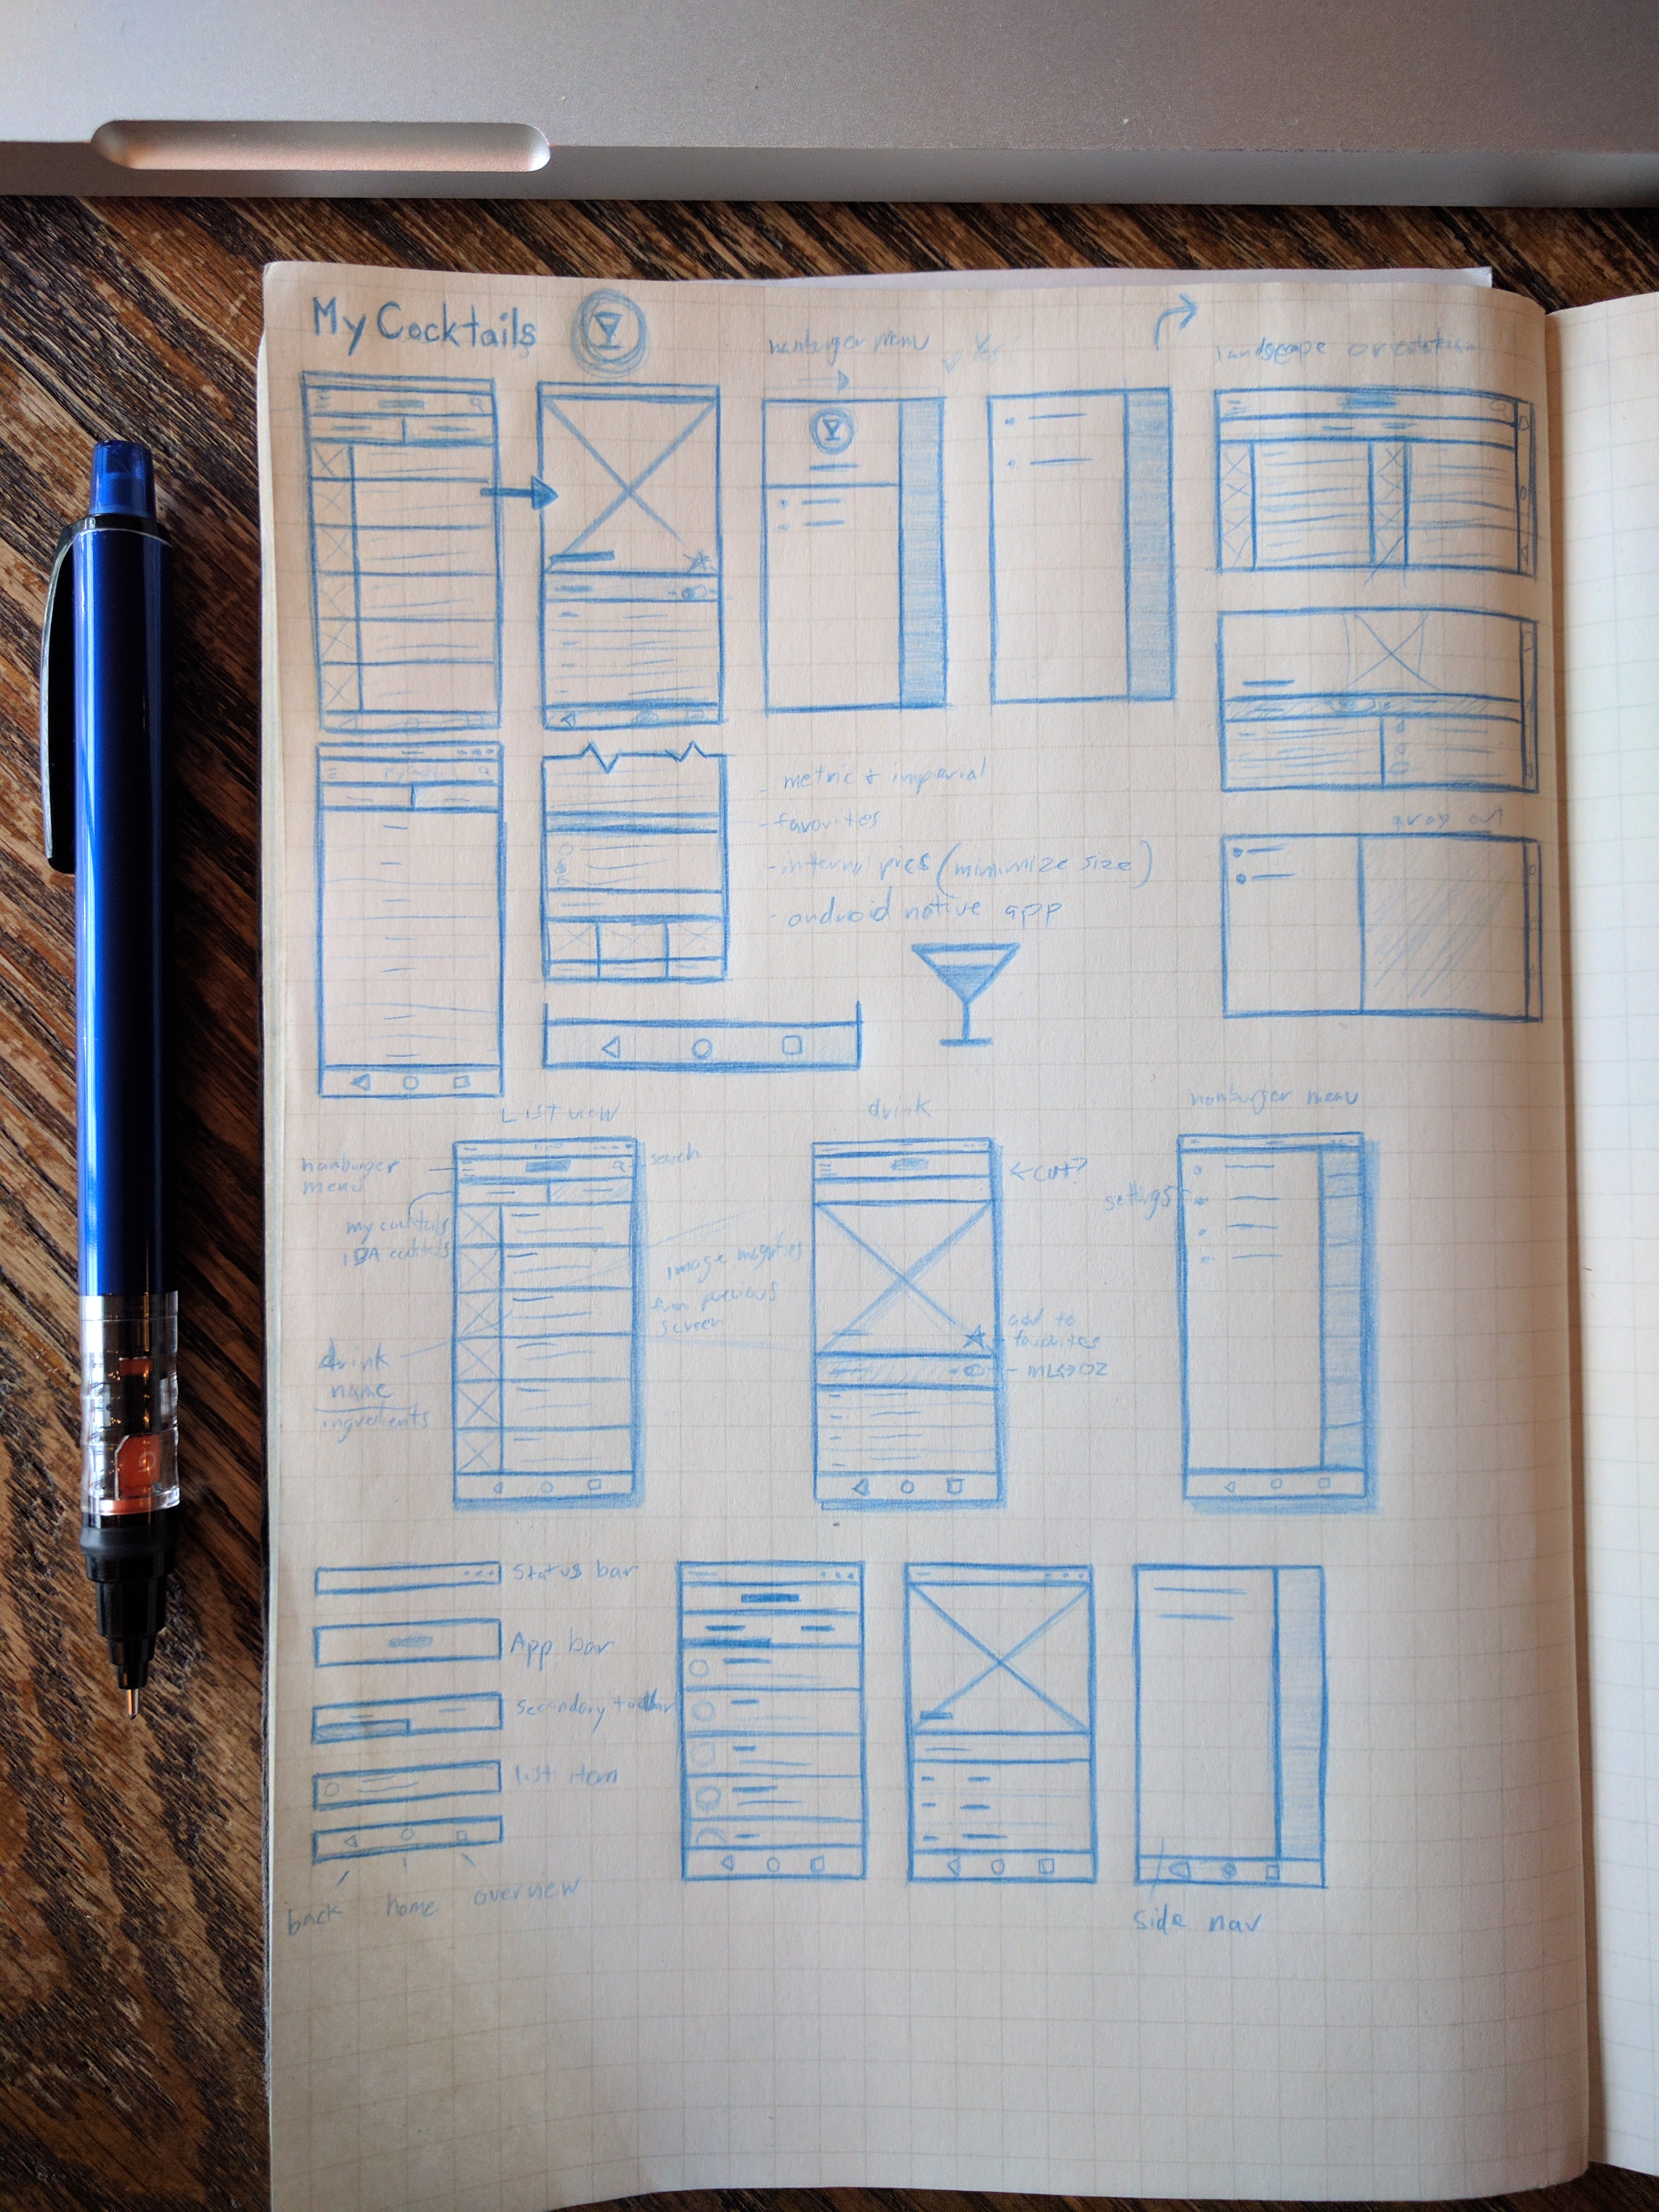 My Cocktails
hamburger menu
landscape orientation
- metric + imperial
- favorites
- internal pics (minimize size)
- android native app
gray out
List view
drink
hamburger menu
hamburger
menu
search
my cocktails
IBA cocktails
image magnifies
from previous
screen
drink
name
ingredients
← cut?
add to
favorites
ML↔OZ
settings
Status bar
App bar
Secondary toolbar
list item
back home overview
side nav